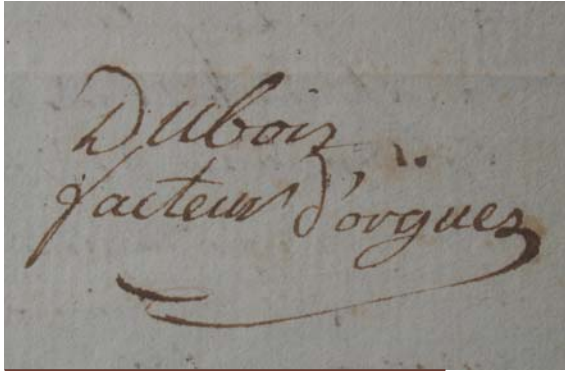 Dubois
facteur d'orgues